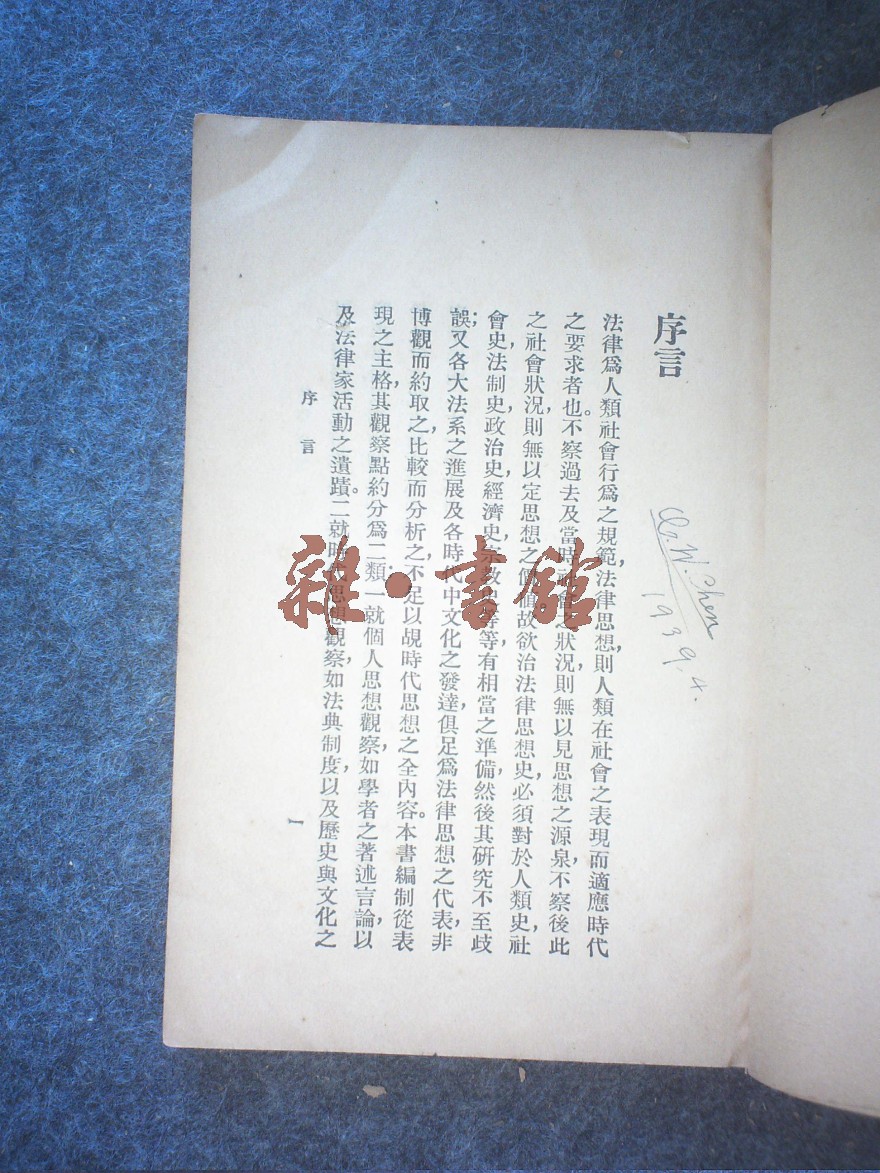 序言
法律爲人類社會行爲之規範，法律思想，則人類在社會之表現而適應時代
之要求者也。不察過去及當時社會之狀況，則無以見思想之源泉，不察後此
之社會狀況，則無以定思想之價値，故欲治法律思想史，必須對於人類史，社
會史，法制史，政治史，經濟史，宗教史等等，有相當之準備，然後其硏究不至歧
誤；又各大法系之進展，及各時代中文化之發達，俱足爲法律思想之代表，非
博觀而約取之，比較而分析之，不足以覘時代思想之全內容。本書編制，從表
現之主格，其觀察點約分爲二類，一就個人思想觀察，如學者之著述言論，以
及法律家活動之遺蹟。二就時代思想觀察，如法典制度，以及歷史與文化之
序言
一
W. Chen
1939, 4.
雜·書館